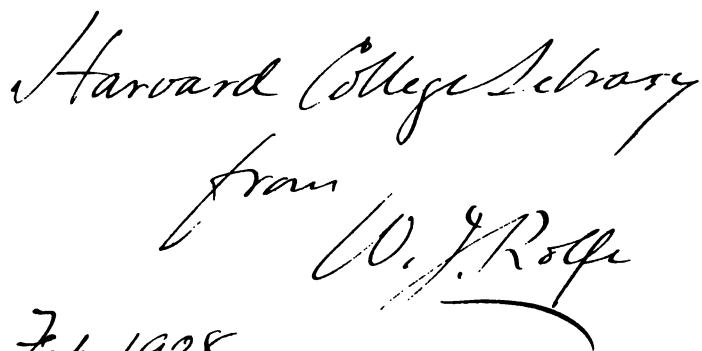 Harvard College Library
from
W. J. Rolfe